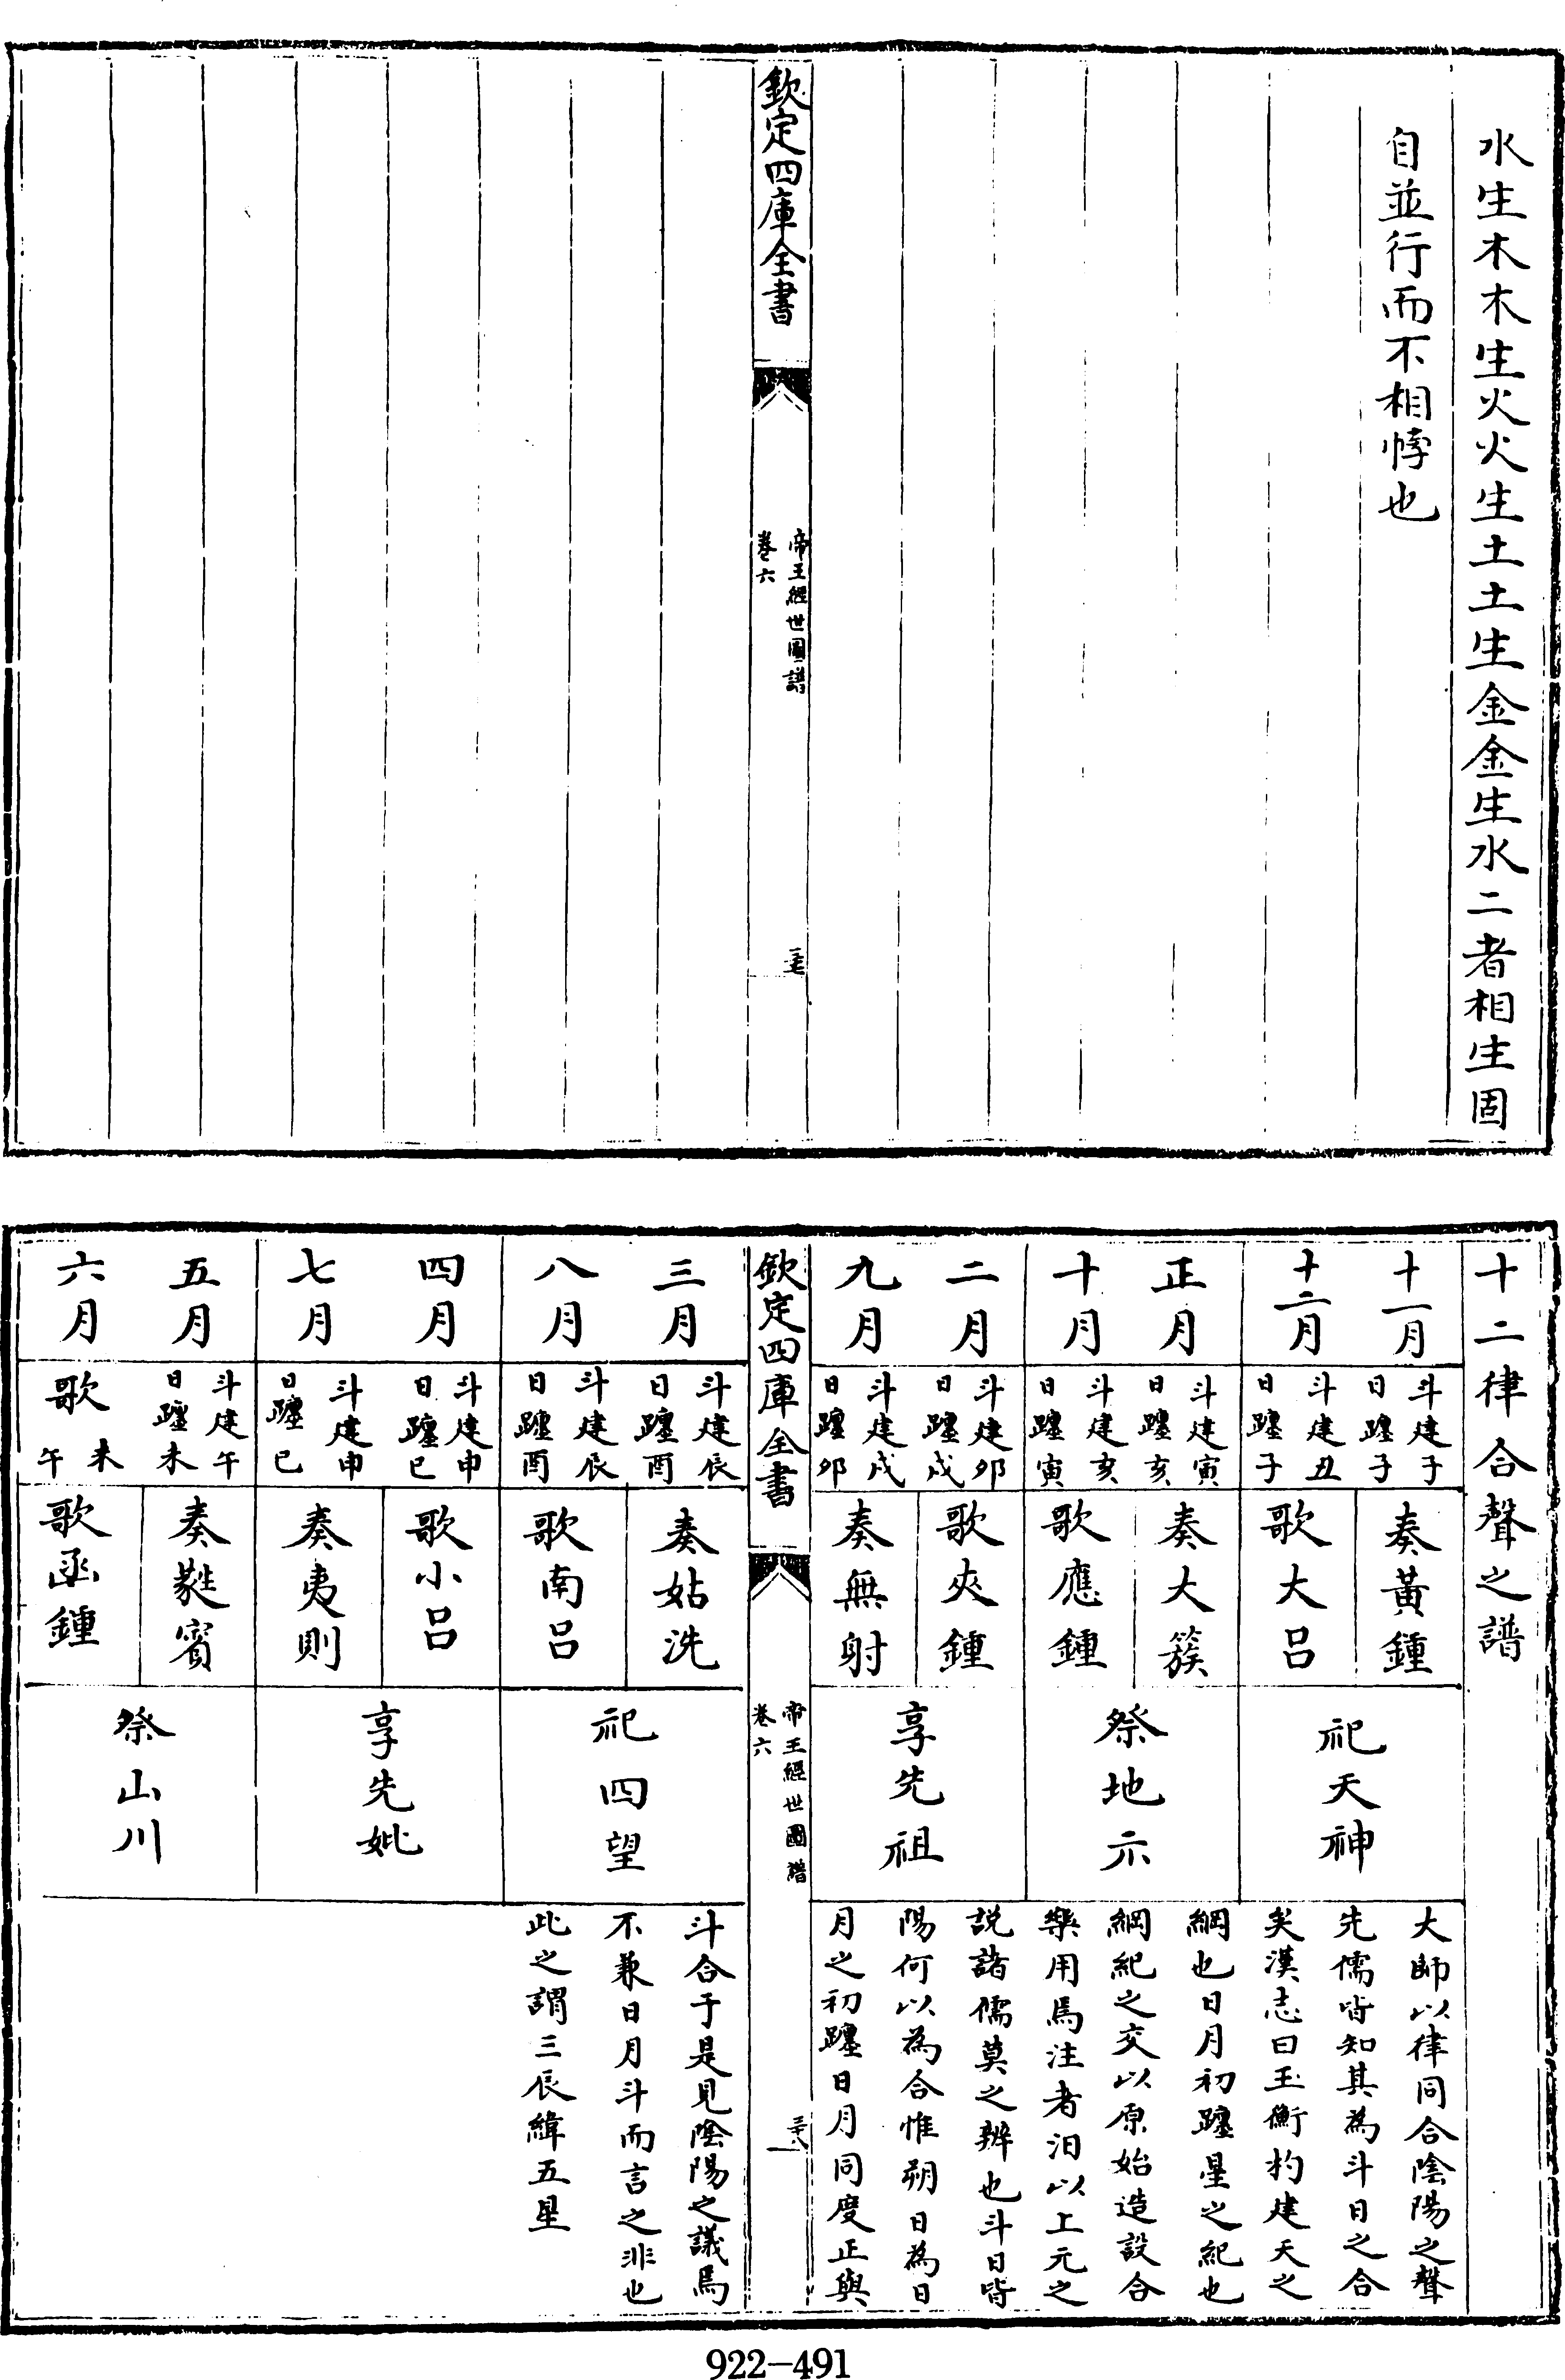 水生木木生火火生土土生金金生水二者相生固
自並行而不相悖也
欽定四庫全書
帝王經世圖譜
卷六
三十七
十二律合聲之譜
十一月
十二月
正月
十月
二月
九月
斗建子
日躔子
斗建丑
日躔子
斗建寅
日躔亥
斗建亥
日躔寅
斗建卯
日躔戌
斗建戌
日躔卯
奏黃鍾
歌大呂
奏大簇
歌應鍾
歌夾鍾
奏無射
祀天神
祭地示
享先祖
大師以律同合陰陽之聲
先儒皆知其為斗日之合
矣漢志曰玉衡杓建天之
綱也日月初躔星之紀也
綱紀之交以原始造設合
樂用焉注者汨以上元之
説諸儒莫之辨也斗日皆
陽何以為合惟朔日為日
月之初躔日月同度正與
欽定四庫全書
帝王經世圖譜
卷六
三十八
三月
八月
四月
七月
五月
六月
斗建辰
日躔酉
斗建辰
日躔酉
斗建申
日躔巳
斗建申
日躔巳
斗建午
日躔未
歌
未
午
奏姑洗
歌南呂
歌小呂
奏夷則
奏蕤賓
歌函鍾
祀四望
享先妣
祭山川
斗合于是見陰陽之議焉
不兼日月斗而言之非也
此之謂三辰緯五星
922-491